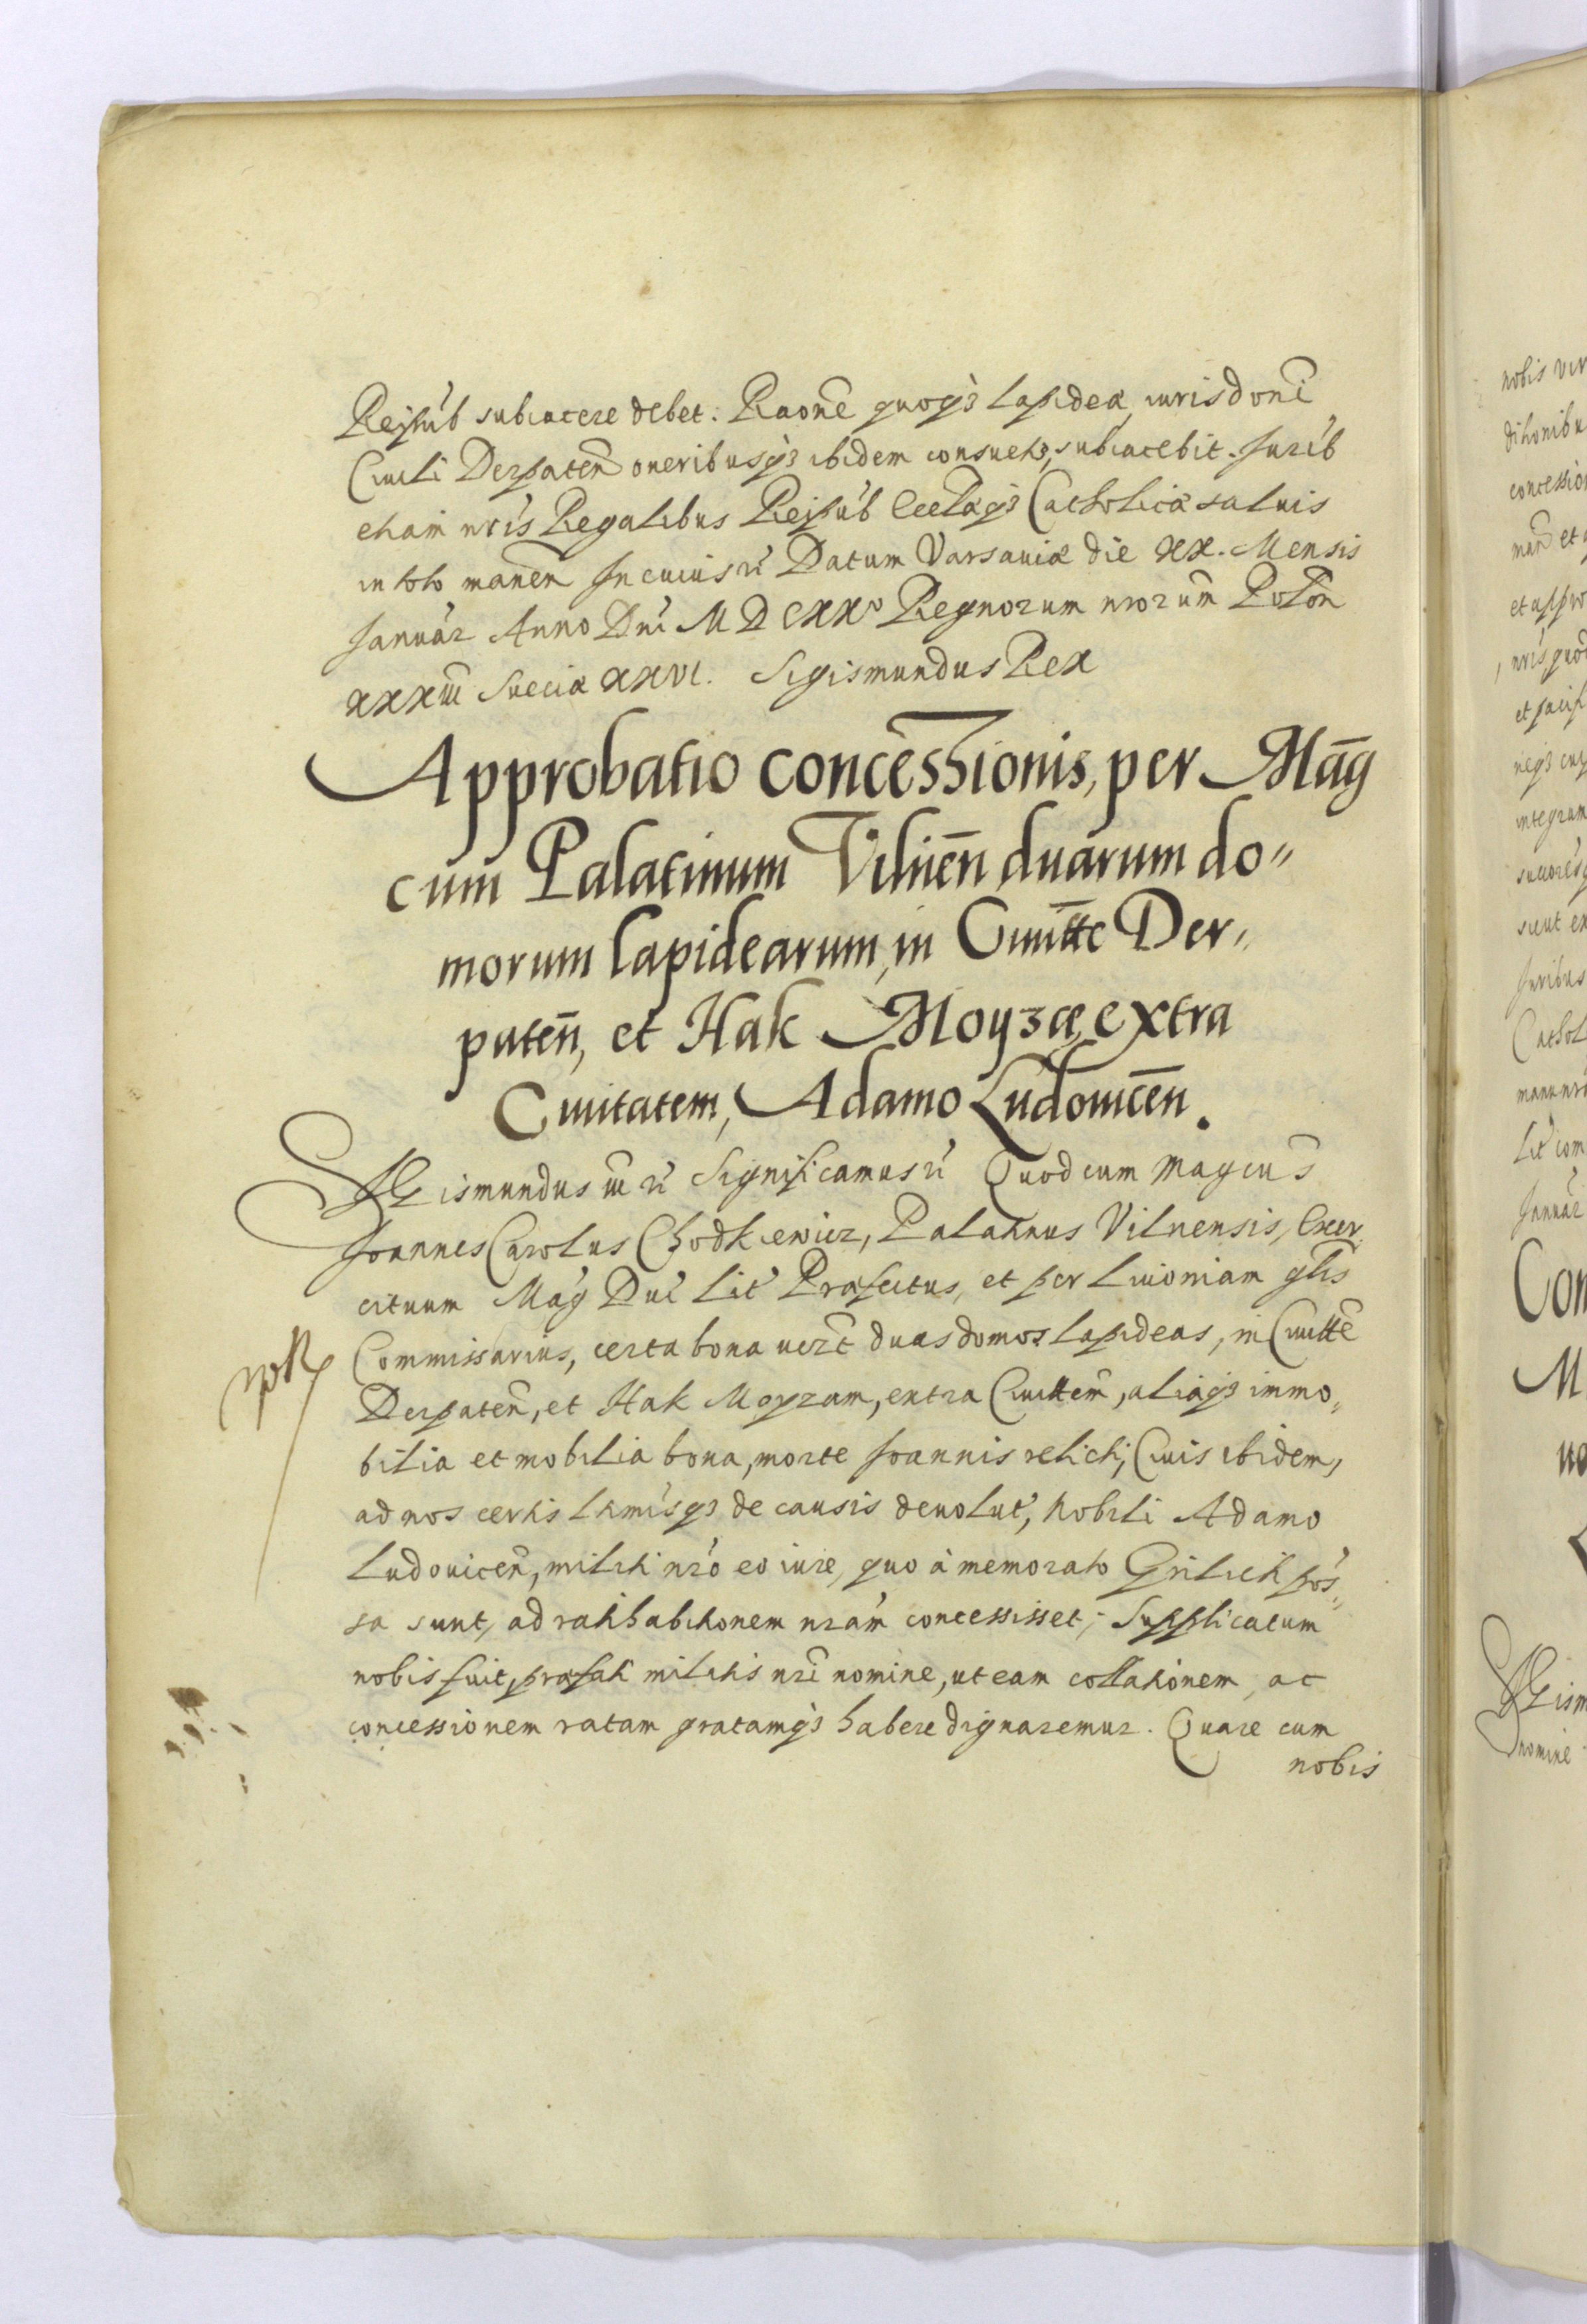 Reipub subiacere debet: Raone quoqȝ lapideæ, iurisdoni
Ciuili Derpaten̄ oneribusqȝ ibidem consuetis, subiacebit. Jurib
etiam nris Regalibus Reipub Ecclaqȝ Catholicæ saluis
in toto manen̄ In cuius rı̃ Datum Varsauiæ die XX. Mensis
Januar Anno Dni M D C XX° Regnorum nrorum Polon̄
XXXIII Sueciæ XXVI. Sigismundus Rex
Approbatio concessionis, per Mag
cum Palatinum Vilnen̄ duarum do„
morum lapidearum, in Ciuitte Der„
paten̄, et Hak Moyzæ, extra
Ciuitatem, Adamo Ludouicen̄.
SIGismundus III rı̃ Significamus rı̃ Quod cum Magcus
Joannes Carolus Chodkiewicz, Palatinus Vilnensis, Exer„
cituum Mag Duc Lit Præfectus, et per Liuoniam glis
Commissarius, certa bona uerᷓt duas domos lapideas, in Ciuitte
Derpaten̄, et Hak Moyzam, extra Ciuittem, aliaqȝ immo„
bilia et mobilia bona, morte Joannis relicti, Ciuis ibidem,
ad nos certis ltimisqȝ de causis deuolut, Nobili Adamo
Ludouicen̄, militi nro eo iure, quo à memorato Grilich pos„
sa sunt, ad ratihabitionem nram concessisset; Supplicatum
nobis fuit, præfati militis nri nomine, ut eam collationem, ac
concessionem ratam gratamqȝ habere dignaremur. Quare cum
nobis